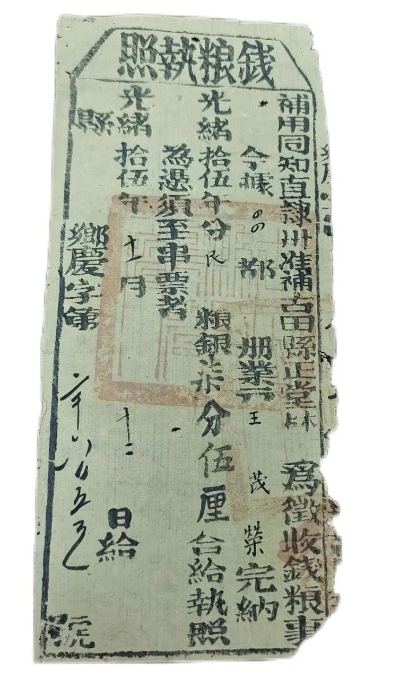 錢粮執照
補用同知直隸州准補古田縣正堂林 為徵收錢粮事
今據 都 册業戶王茂榮完納
光緒拾伍年分民 粮銀柒分伍厘合給執照
為憑須至串票者
光緒拾伍年十一月十二日給
縣 鄉慶字第 號